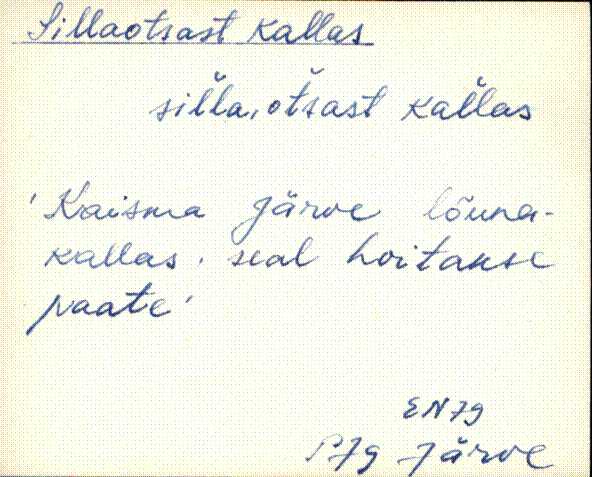 Sillaotsast kallas
silla, otsast kallas
'Kaisma järve lõuna-
kallas. seal hoitakse
paate'
EN 79
PJg Järve